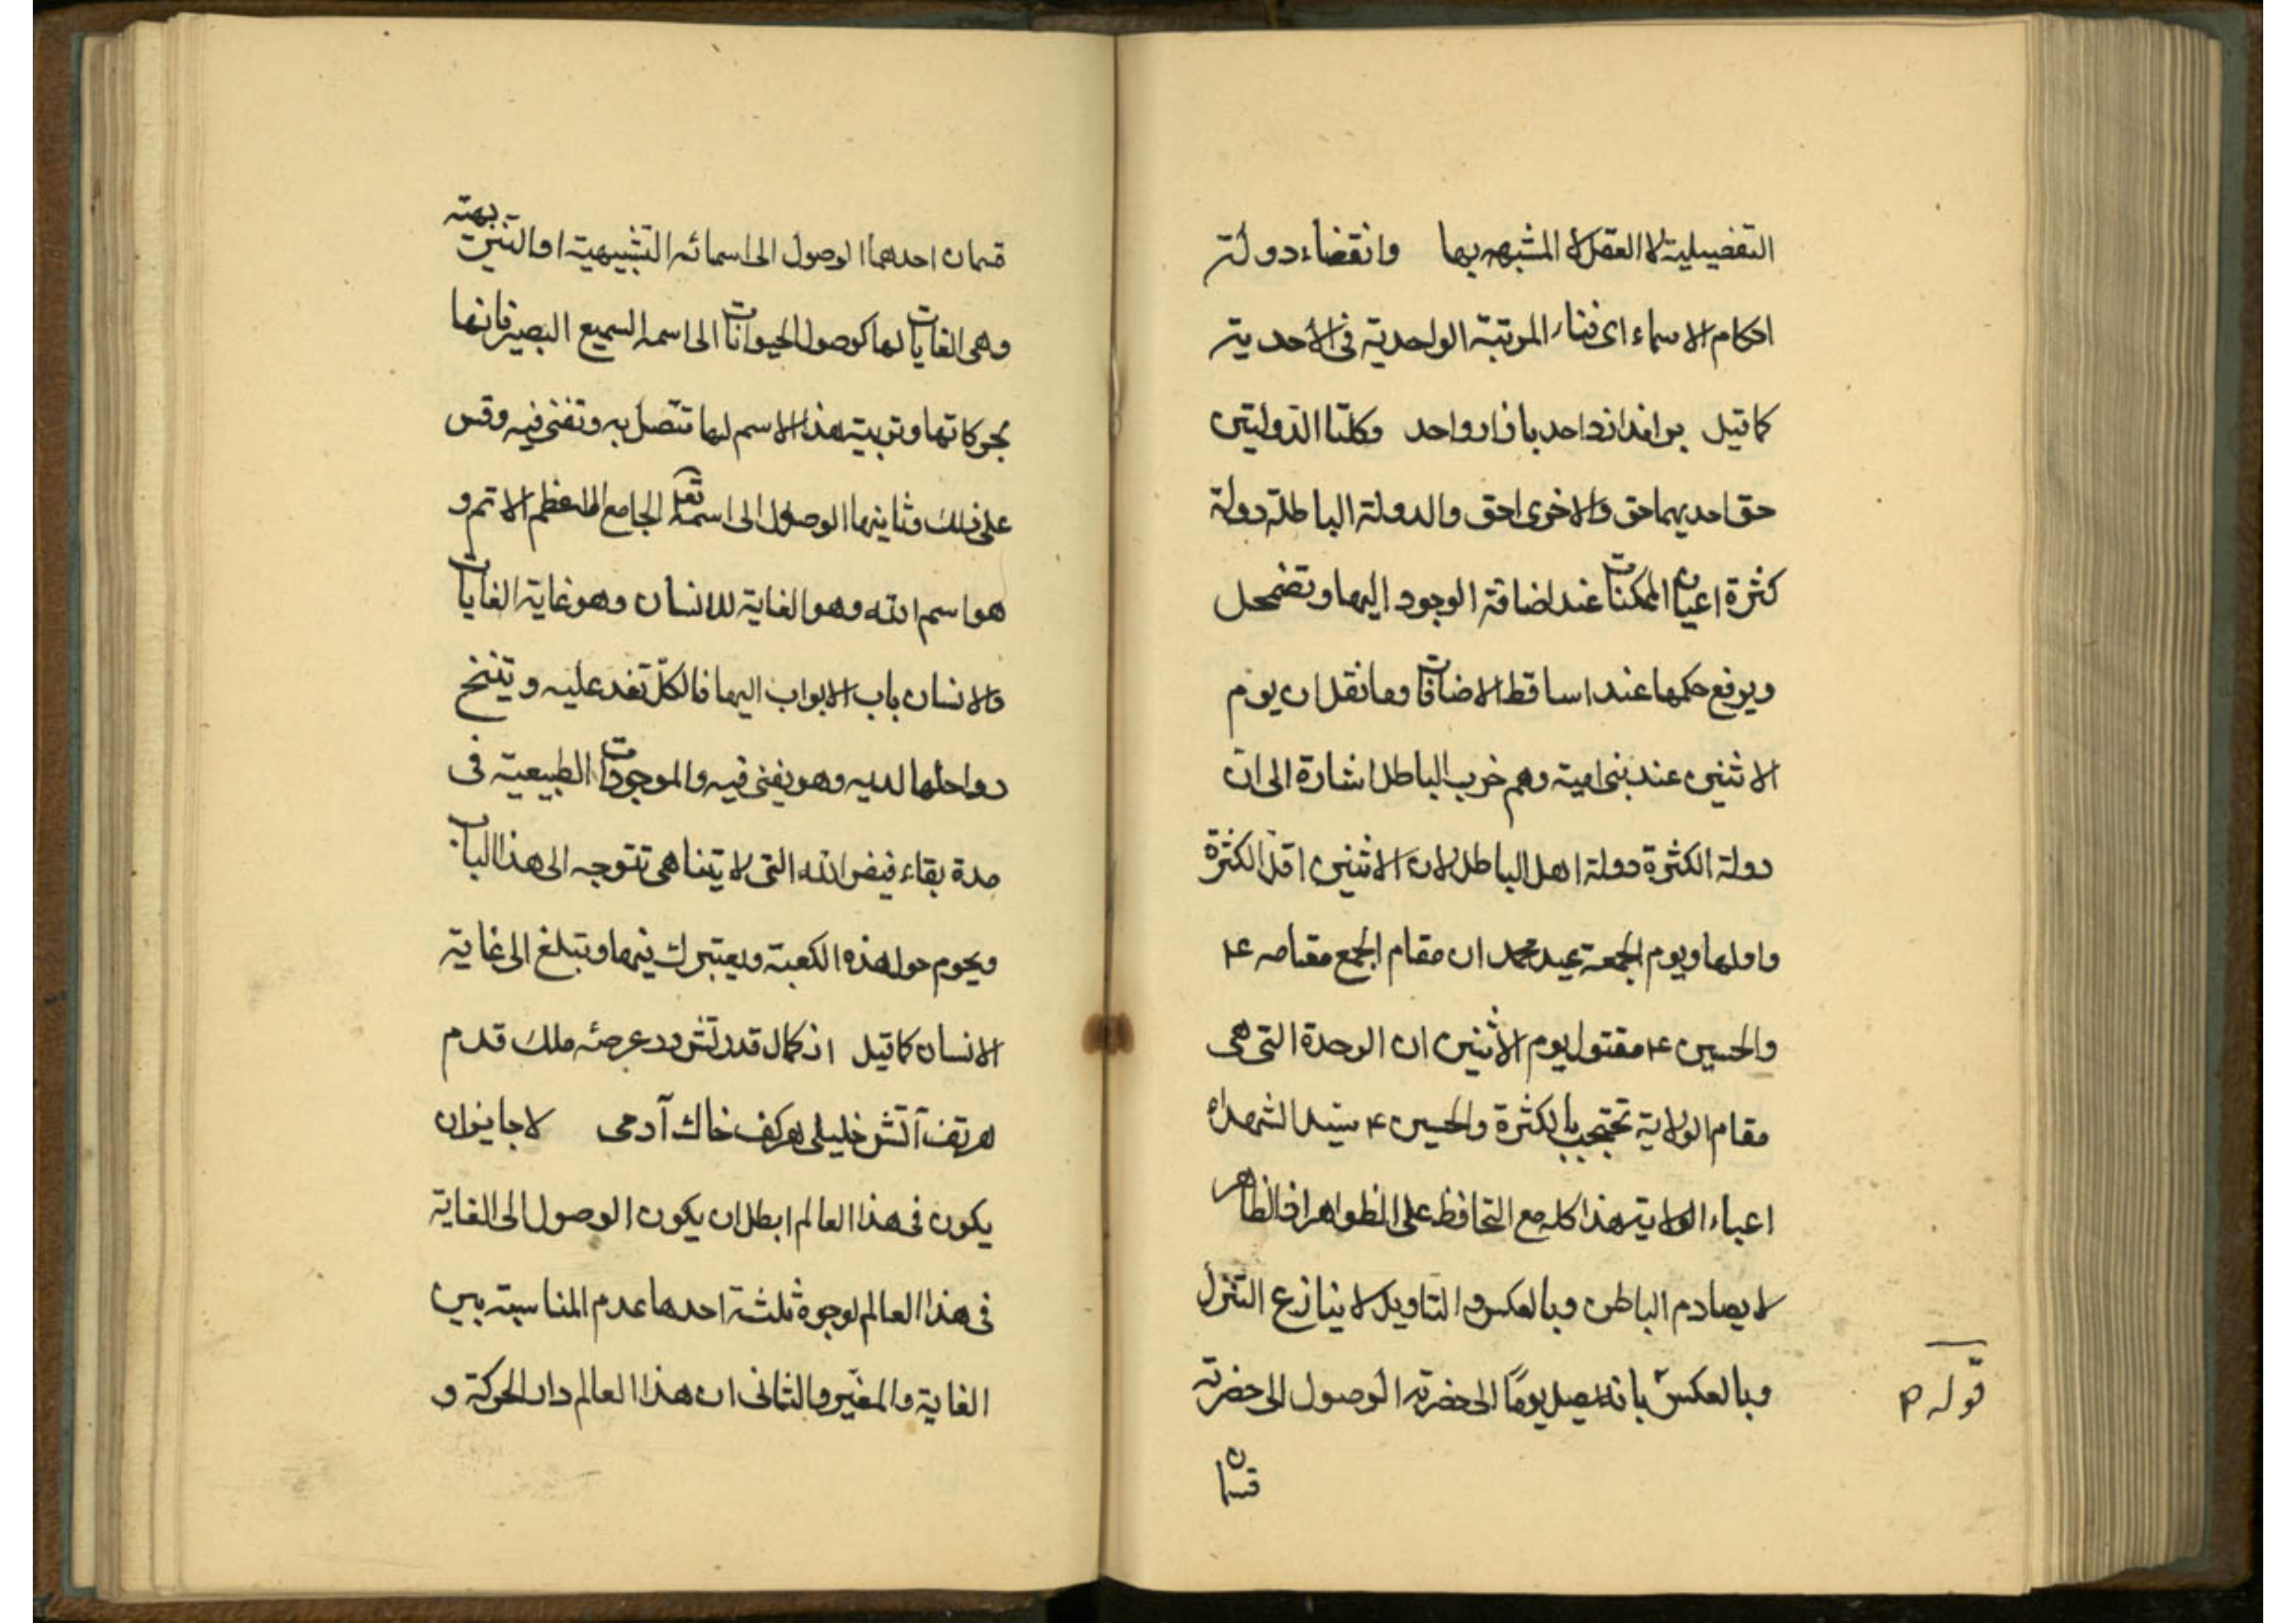 التفضيلية لا العقل لا المشبهه بها وانقضاء دولة
احكام الاسماء اى فناء المرتبة الواحدية فى الأحدية
كما قيل واحد وكلتا الدولتين
حق احديهما حق والاخرى احق والدولة الباطلة دولة
كثرة اعيان الممكنات عند اضافة الوجود اليها وتضمحل
ويرفع حكمها عند اسقاط الاضافات وما نقل ان يوم
الاثنين عند بنى امية وهم خرب الباطل اشارة الى انّ
دولة الكثرة دولة اهل الباطل لان الاثنين اقل الكثرة
واولها ويوم الجمعة عيد محمد ان مقام الجمع مقامه ع
والحسين ع مقتول يوم الاثنين ان الوحدة التى هى
مقام الولاية تحتجب بالكثرة والحسين ع سيد الشهداء
اعباء الولاية هذا كله مع التحافظ على الظواهر اذ الظاهر
لا يصادم الباطن وبالعكس والتاويل لا ينازع التنزل
وبالعكس بانه يصل يومًا الى حضرته الوصول الى حضرته
قوله ص
قسمان
قسمان احدهما الوصول الى اسمائه التشبيهية او التنزيهية
وهى الغايات لها كوصول الحيوانات الى اسمه السميع البصير فانها
بحركاتها وتربية هذا الاسم لها تتصل به وتفنى فيه وقس
على ذلك وثانيها الوصول الى اسمه تعـ الجامع الاعظم الاتم و
هو اسم الله وهو الغاية للانسان وهو غاية الغايات
والانسان باب الابواب اليها فالكلّ تفد عليه وتنخ
رواحلها لديه وهو يفنى فيه والموجودات الطبيعية فى
مدة بقاء فيض الله التى لا يتناهى تتوجه الى هذا الباب
ويحوم حول هذه الكعبة ويعتبرك فيها وتبلغ الى غاية
الانسان كما قيل از كمال قدرتش در عرصهٔ ملك قدم
هر تف آتش خليلى هر كف خاك آدمى لا جايز ان
يكون فى هذا العالم ابطل ان يكون الوصول الى الغاية
فى هذا العالم لوجوه ثلثة احدها عدم المناسبة بين
الغاية والمغيّر والثانى ان هذا العالم دار الحركة و